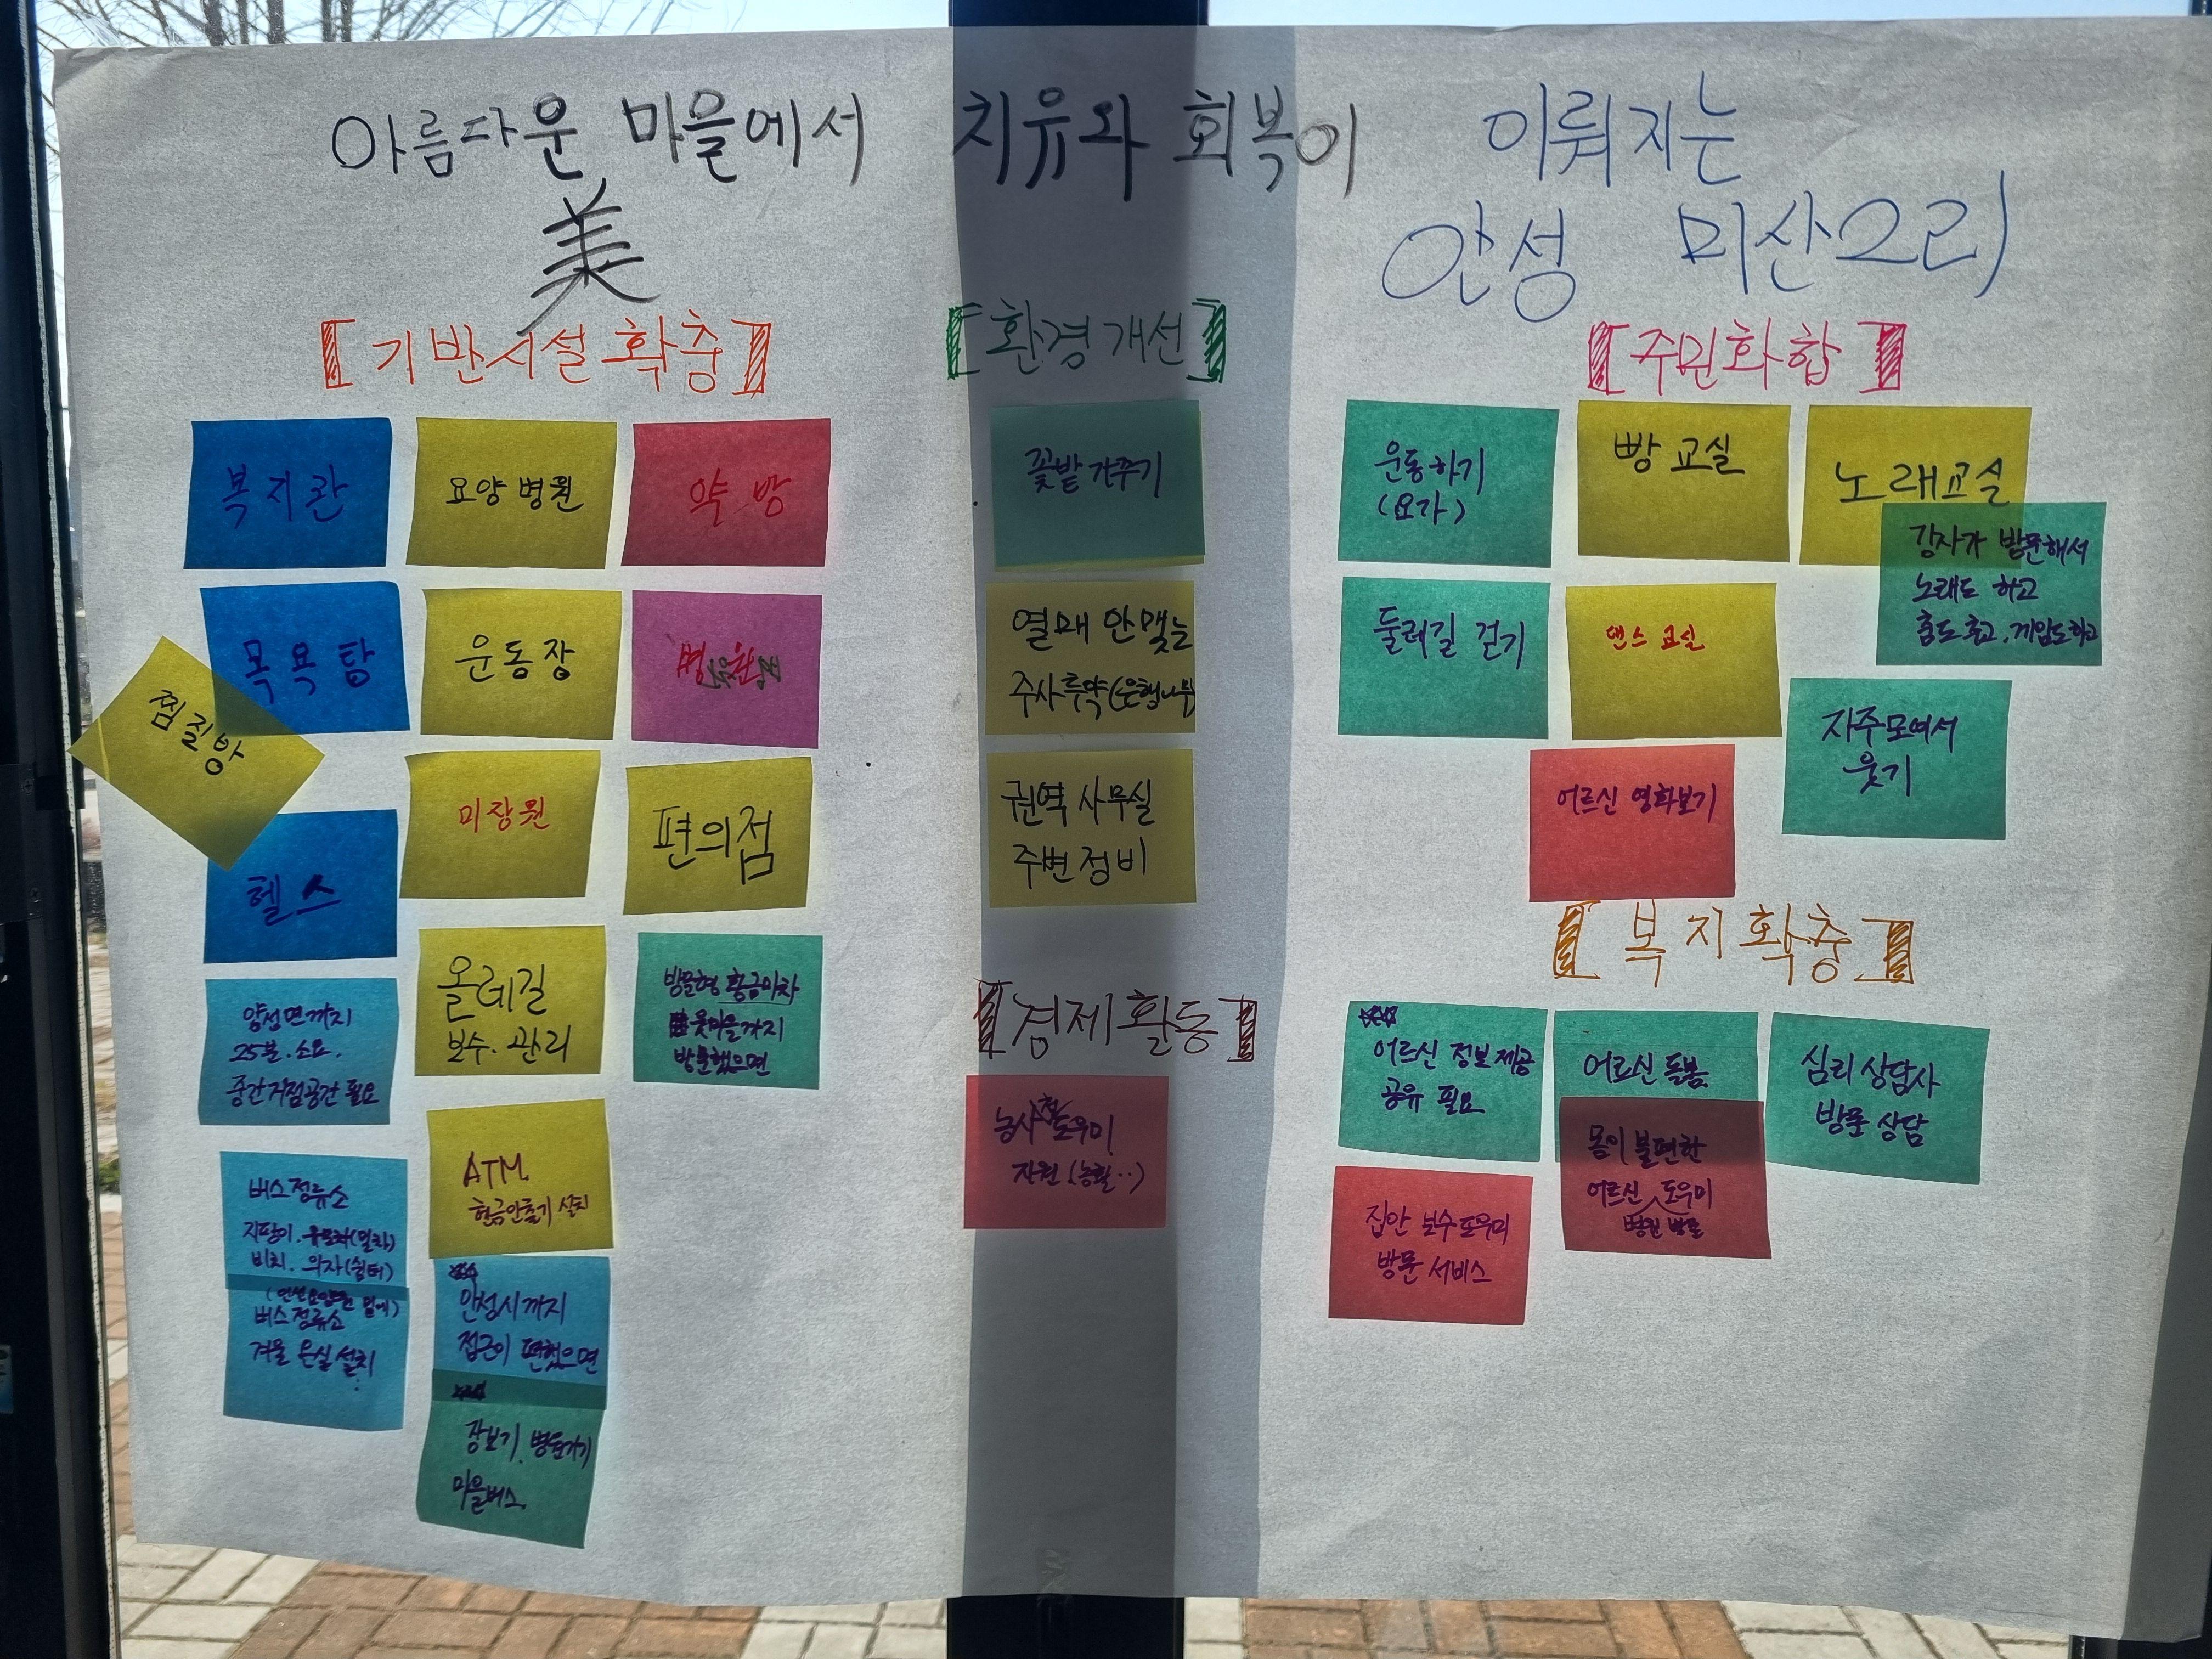 아름다운 마을에서 치유와 회복이 이뤄지는
美
안성 미산오리
[기반시설확충]
복지관
요양병원
약방
목욕탕
찜질방
운동장
병원
헬스
미장원
편의점
양성면까지
25분.소요.
중간거점공간 필요
올레길
보수.관리
방문형 황금마차
윗마을까지
방문했으면
버스정류소
지팡이.유모차(밀차)
비치. 의자(쉼터)
버스정류소
겨울 온실 설치
ATM
현금인출기 설치
안성시까지
접근이 편했으면
장보기. 병원가기
마을버스
[환경개선]
꽃밭 가꾸기
열매 안맺는
주사투약(은행나무)
권역 사무실
주변정비
[경제활동]
농사철도우미
자원 (농활..)
[주민화합]
운동하기
(요가)
빵교실
노래교실
강사가 방문해서
노래도 하고
춤도추고.게임도하고
둘레길 걷기
댄스교실
자주모여서
웃기
어르신 영화보기
[복지확충]
어르신 정보제공
공유 필요
어르신 돌봄
몸이 불편한
어르신 도우미
병원 방문
심리상담사
방문 상담
집안 보수도우미
방문 서비스